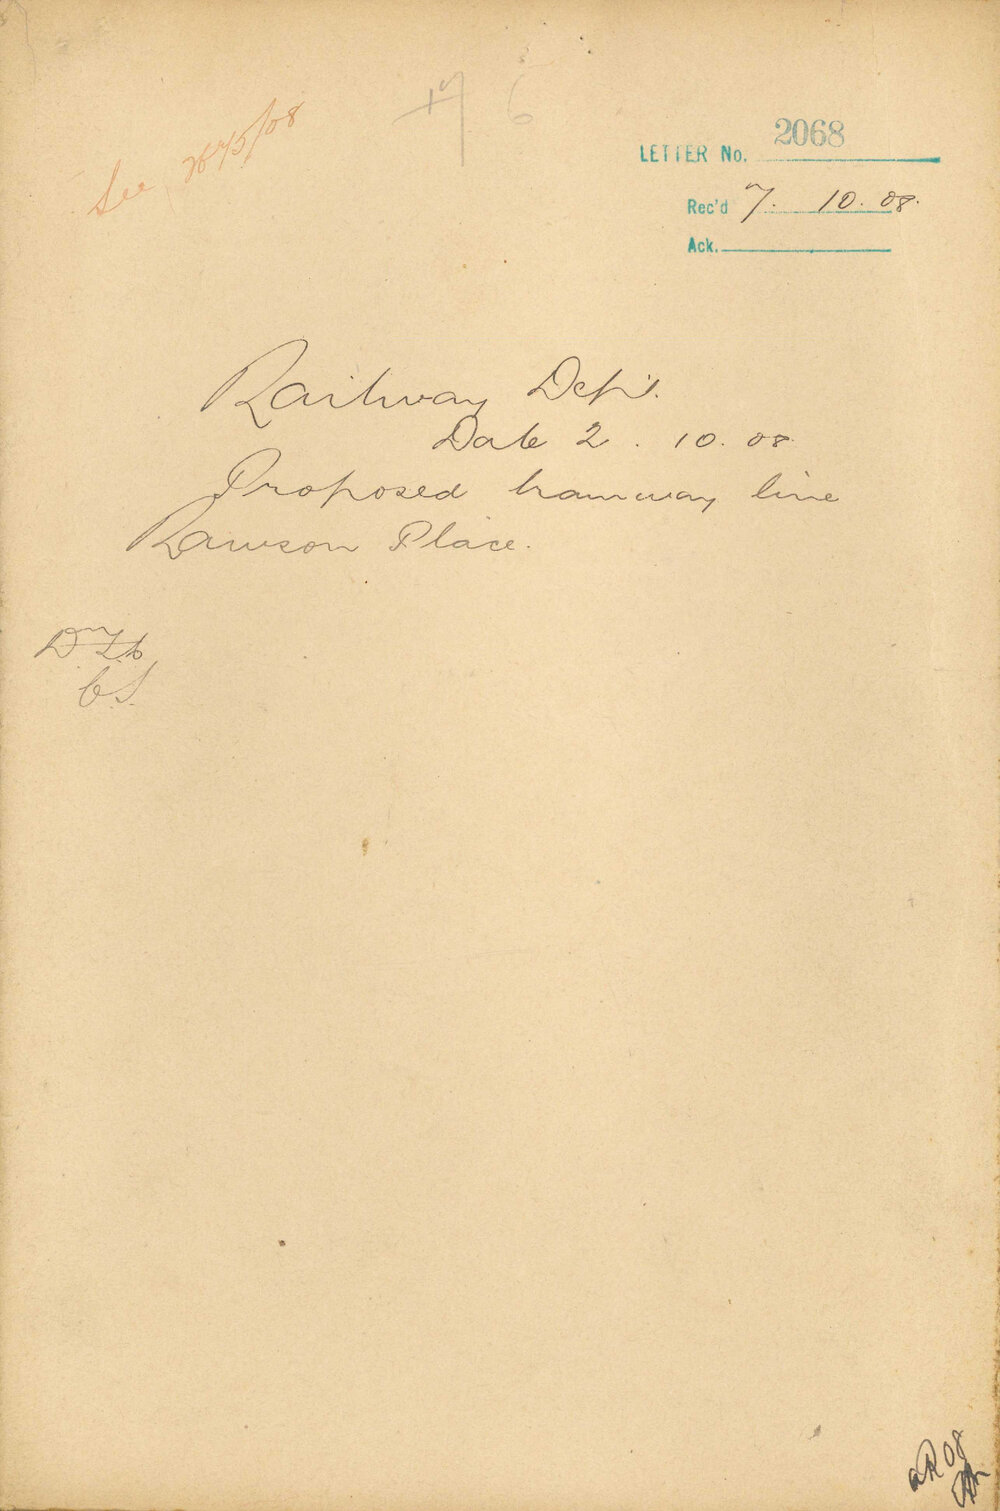 See 2675/08
LETTER No. 2068
Rec'd 7. 10. 08.
Ack.
Railway Dept.
Date 2. 10. 08
Proposed tramway line
Rawson Place.
C.S.